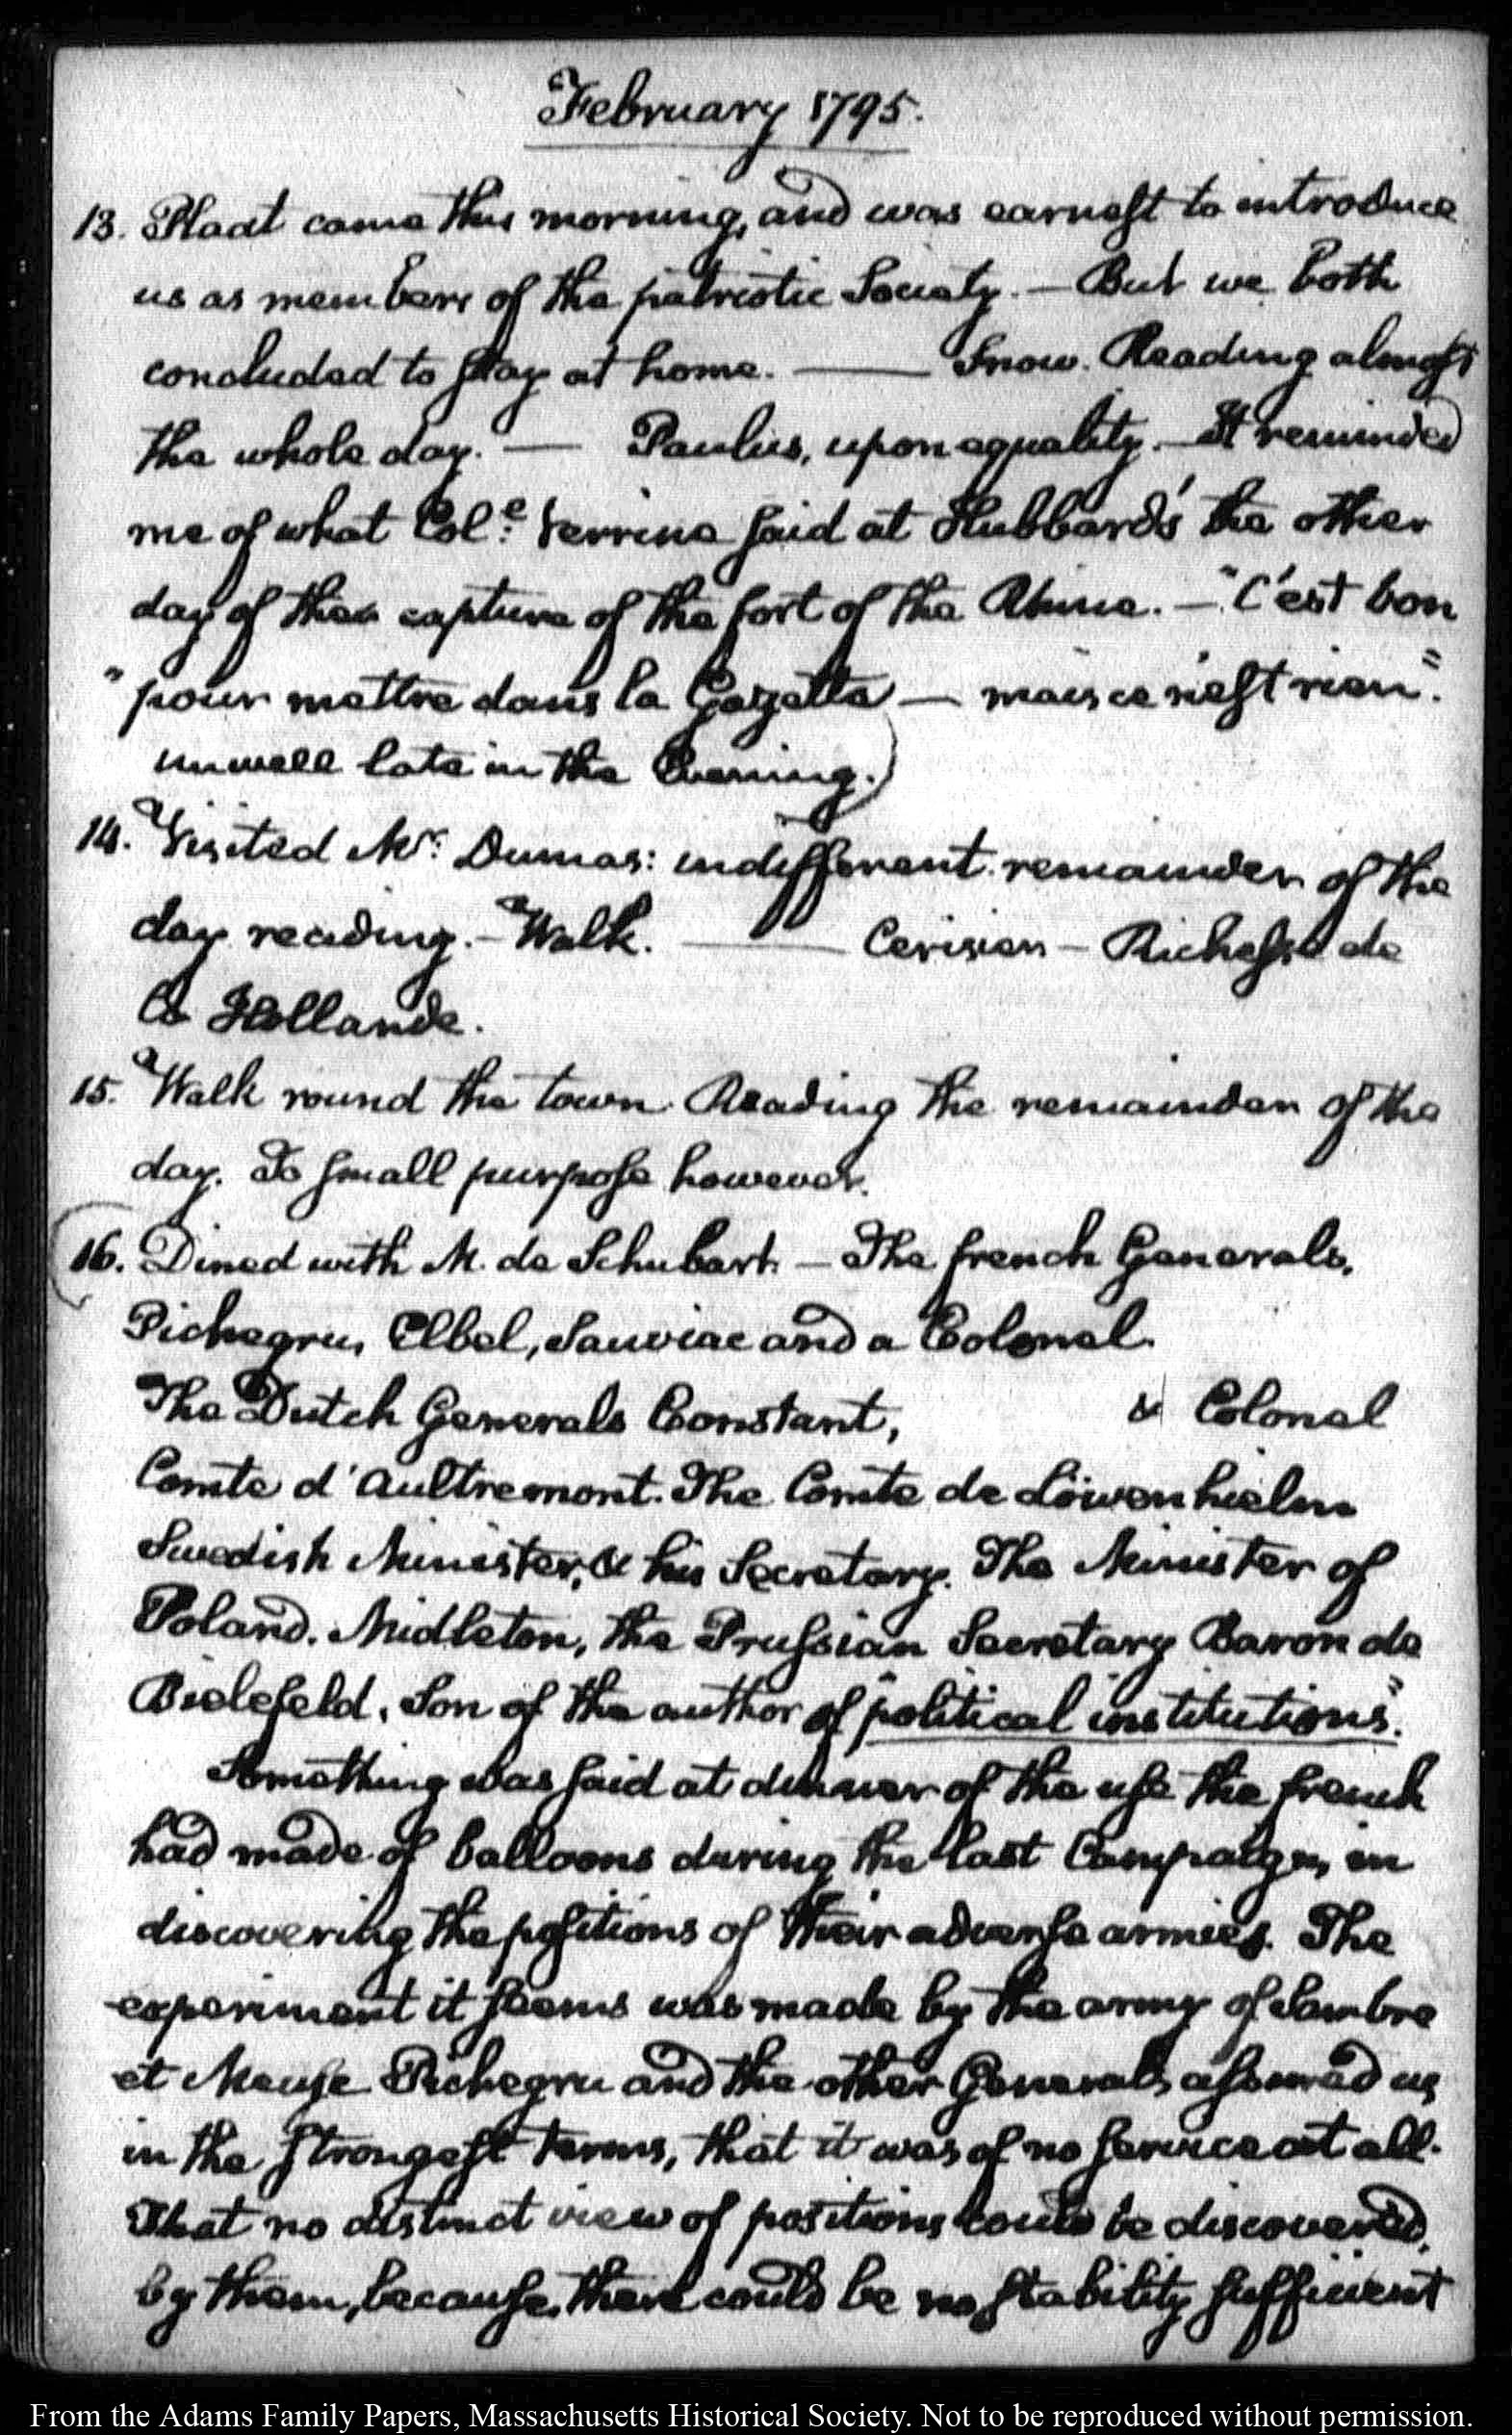 February 1795.
13. Plaat came this morning, and was earnest to introduce
us as members of the patriotic Society. — But we both
concluded to stay at home. — Snow. Reading almost
the whole day. — Paulus, upon equality. — It reminded
me of what Col.e Verrine said at Hubbard's the other
day of the capture of the fort of the Rhine. — "C'est bon
" pour mettre dans la Gazette — mais ce n'est rien".
unwell late in the Evening.
14. Visited Mr: Dumas: indifferent. remainder of the
day reading. — Walk. — Cerisier — Richesse de
la Hollande.
15. Walk round the town. Reading the remainder of the
day. To small purpose however.
16. Dined with M. de Schubart. — The french Generals,
Pichegru, Elbel, Sauviac and a Colonel.
The Dutch Generals Constant, & Colonel
Comte d'Aultremont. The Comte de Löwenhielm
Swedish Minister, & his Secretary. The Minister of
Poland. Midleton, the Prussian Secretary Baron de
Bielefeld, Son of the author of "political institutions".
Something was said at dinner of the use the french
had made of balloons during the last Campaign, in
discovering the positions of their adverse armies. The
experiment it seems was made by the army of Sambre
et Meuse Pichegru and the other Generals assured us
in the strongest terms, that it was of no service at all.
That no distinct view of positions could be discovered,
by them, because, there could be no stability sufficient
From the Adams Family Papers, Massachusetts Historical Society. Not to be reproduced without permission.